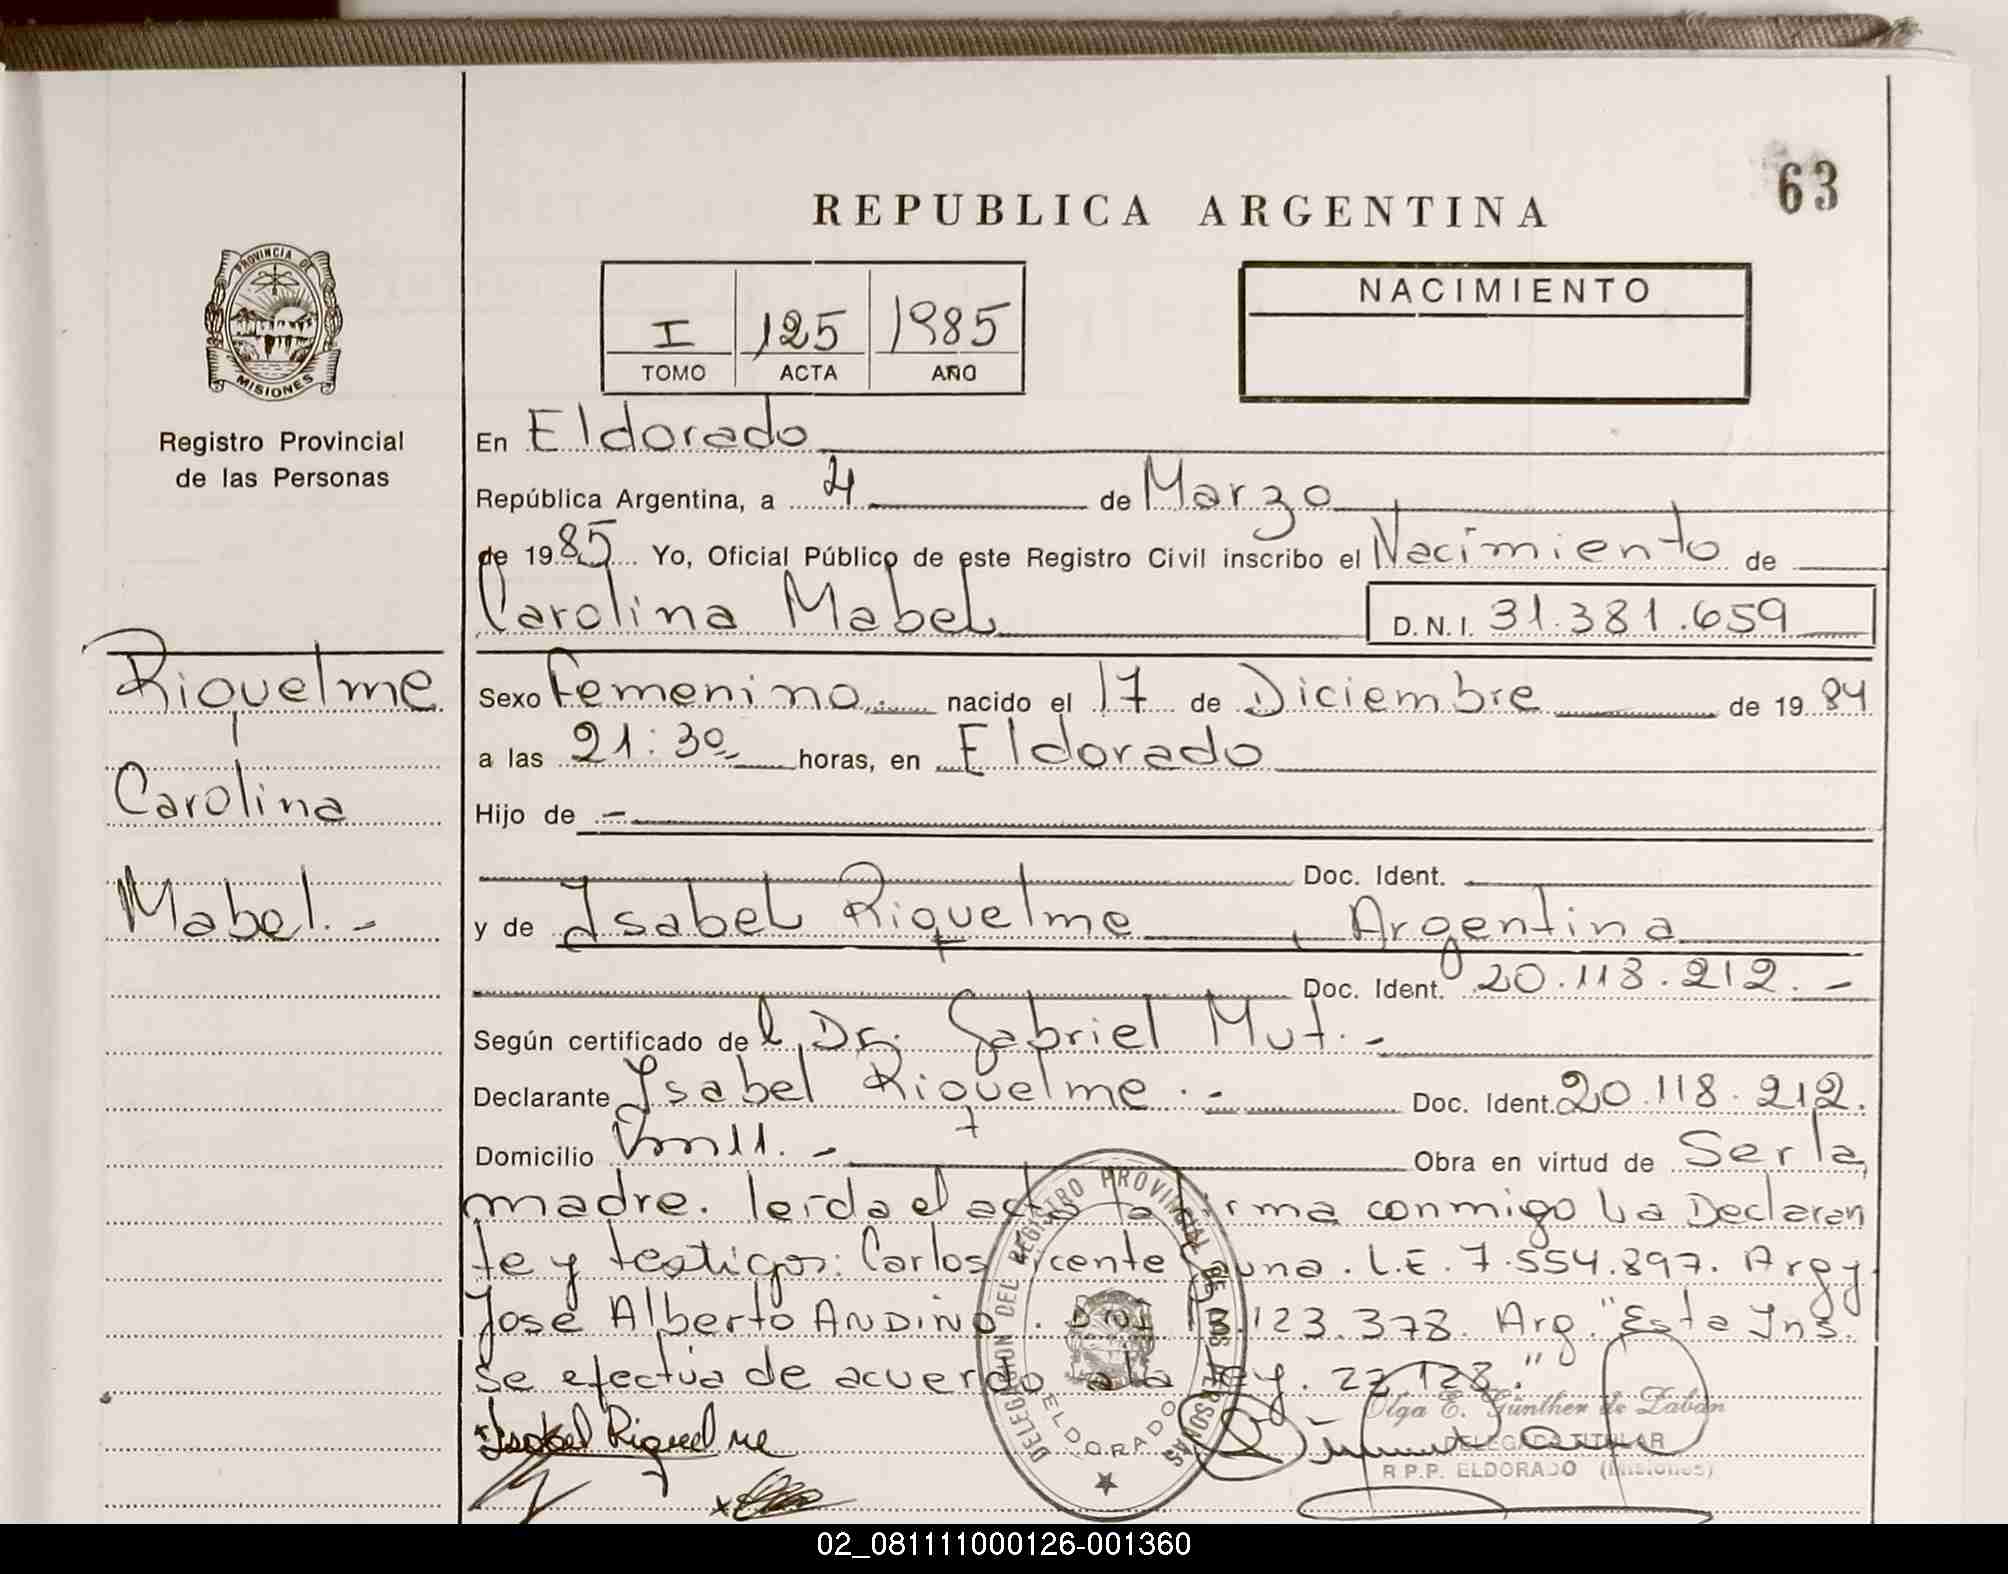 63
REPUBLICA ARGENTINA
PROVINCIA DE
MISIONES
Registro Provincial
de las Personas
I 125 1985
TOMO ACTA AÑO
NACIMIENTO
En Eldorado
República Argentina, a 4 de Marzo
de 1985 Yo, Oficial Público de este Registro Civil inscribo el Nacimiento de
Carolina Mabel D.N.I. 31.381.659
Riquelme
Carolina
Mabel.-
Sexo Femenino nacido el 17 de Diciembre de 1984
a las 21:30 horas, en Eldorado
Hijo de -
Doc. Ident.
y de Isabel Riquelme, Argentina
Doc. Ident. 20.118.212.-
Según certificado del Dr. Gabriel Mut.-
Declarante Isabel Riquelme.- Doc. Ident. 20.118.212.
Domicilio Km 11.- Obra en virtud de Ser la
madre. leída el acta la firma conmigo La Declaran
te y testigos: Carlos Vicente Launa. L.E. 7.554.897. Arg y
José Alberto ANDINO. DNI 13.123.378. Arg. "Esta Ins.
se efectúa de acuerdo a la ley. 22.128."
Isabel Riquelme
DELEGACION DEL REGISTRO PROVINCIAL DE LAS PERSONAS
ELDORADO
Olga E. Günther de Zabán
DELEGADA TITULAR
R.P.P. ELDORADO (Misiones)
02_081111000126-001360